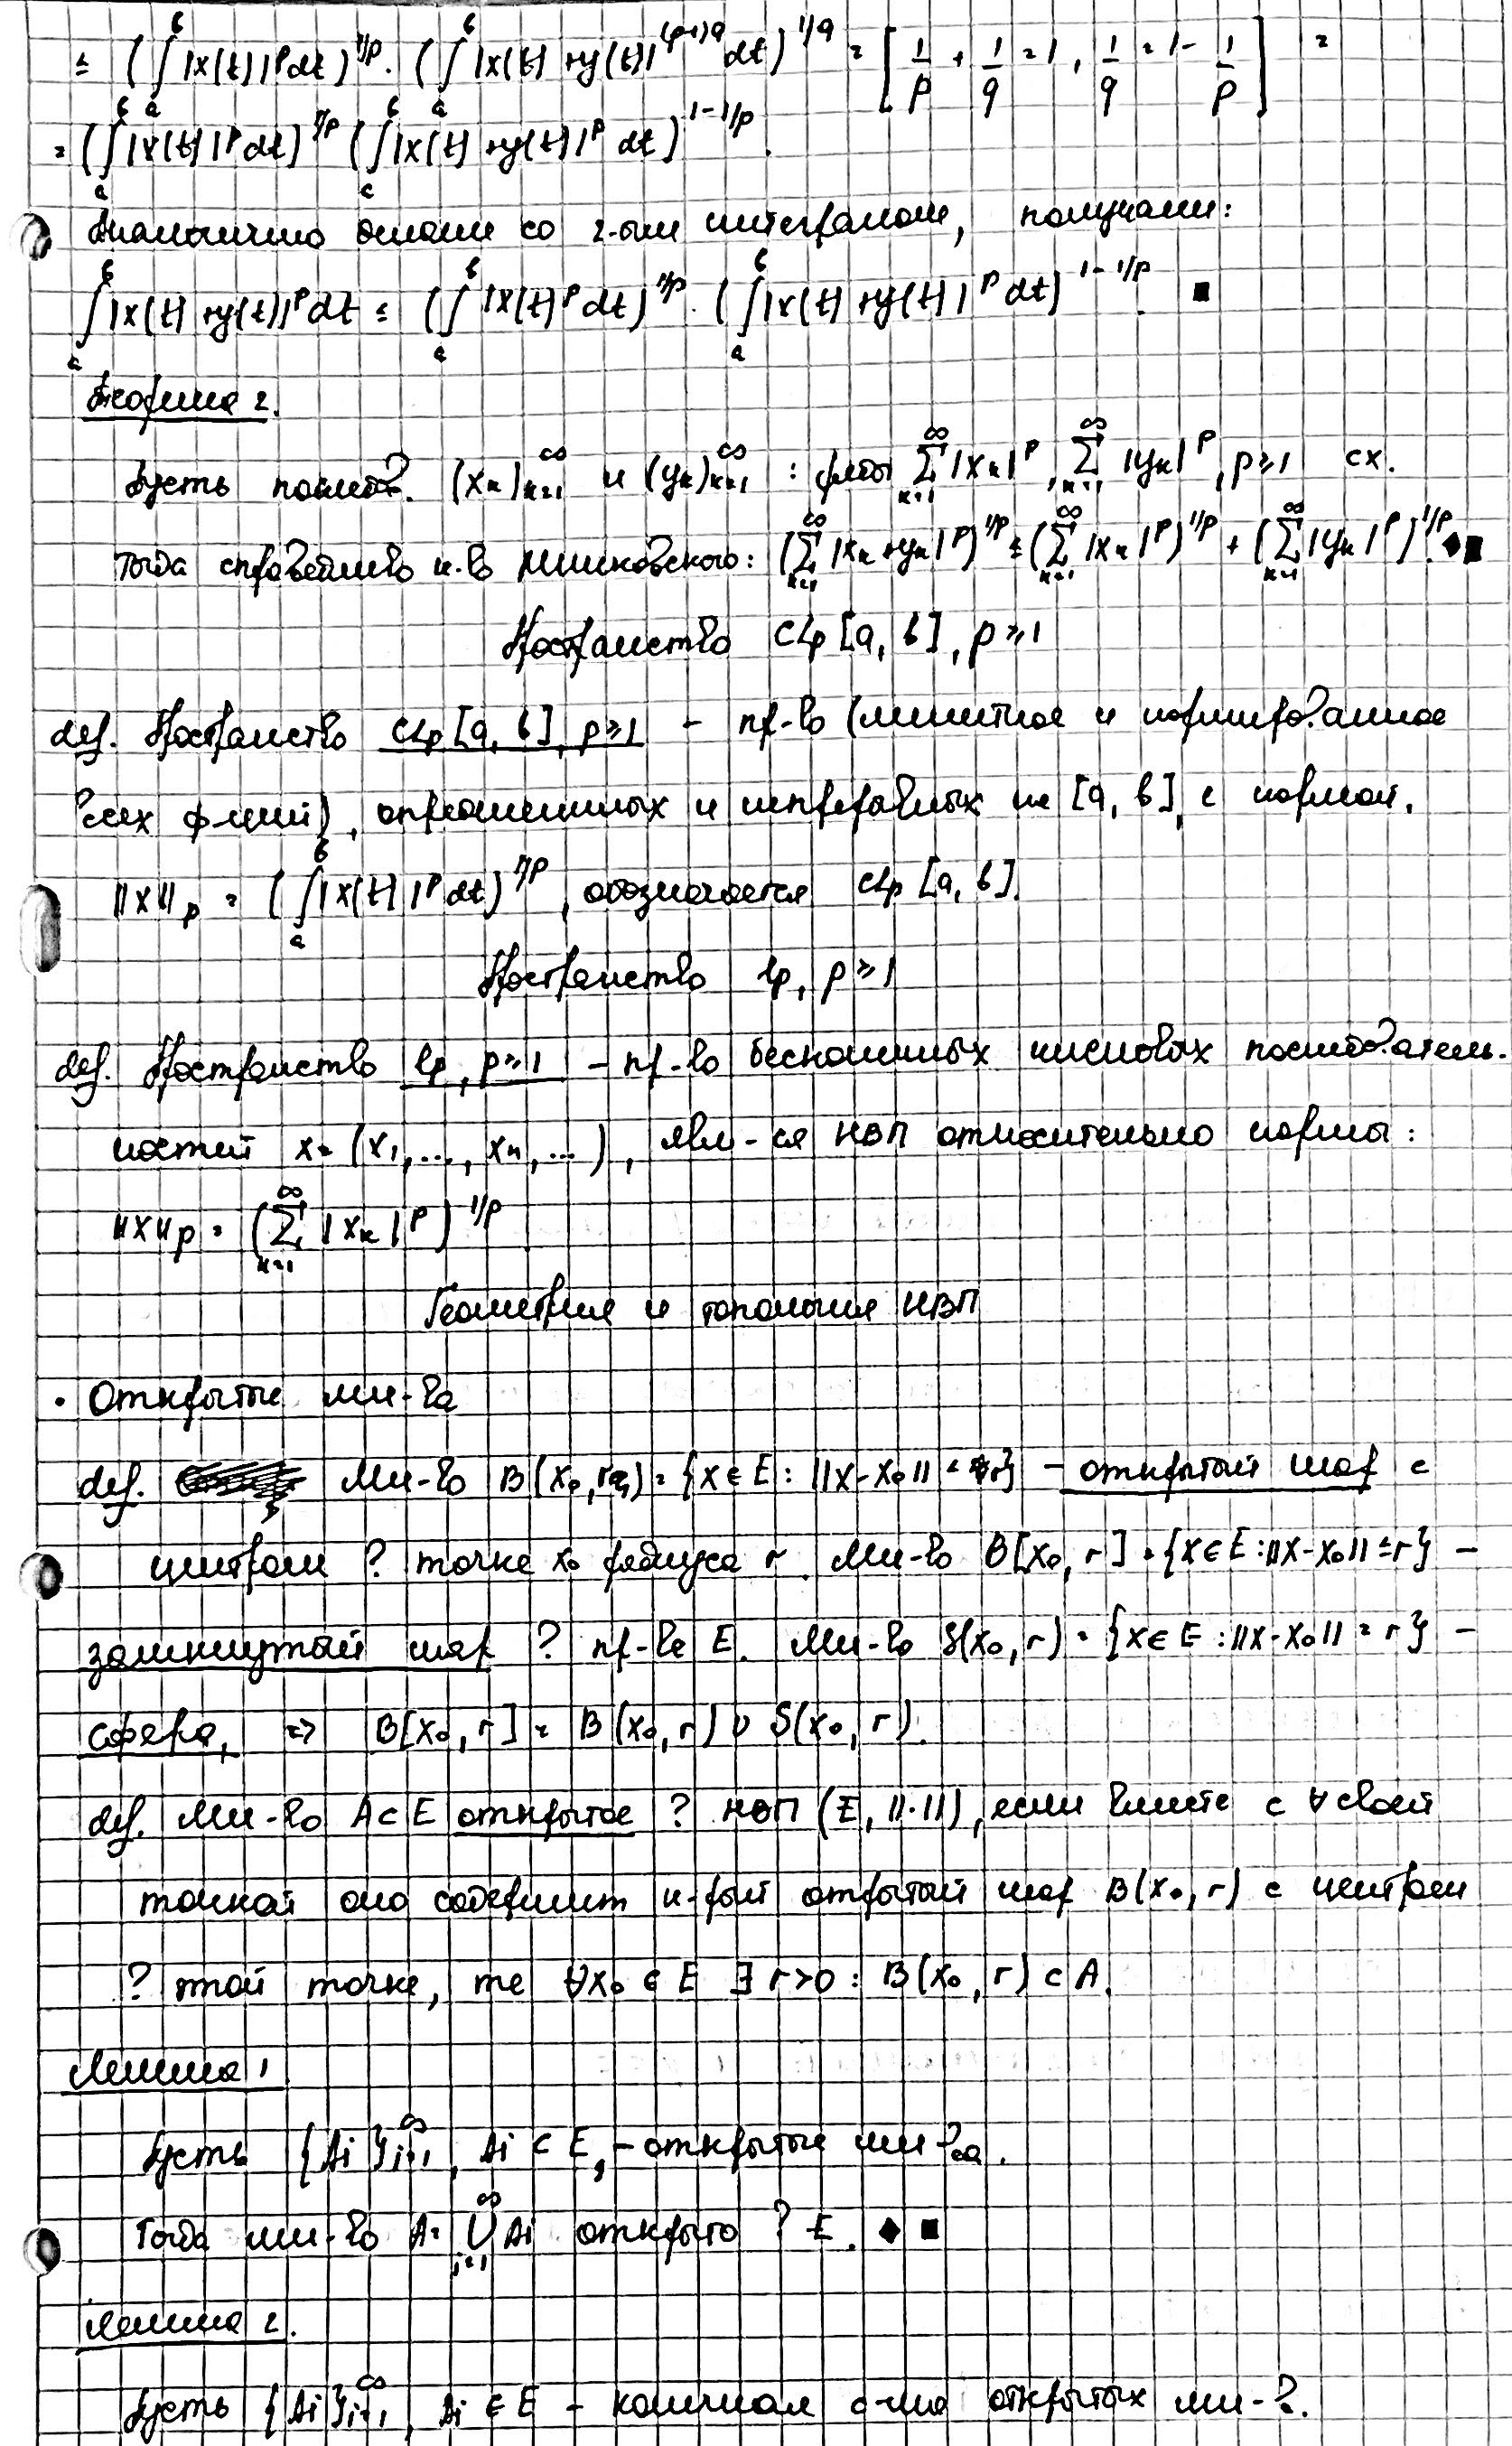 ≤ (∫_a^b |x(t)|^p dt)^{1/p} · (∫_a^b |x(t)+y(t)|^{(p-1)q} dt)^{1/q} = [1/p + 1/q = 1, 1/q = 1 - 1/p] =
= (∫_a^b |x(t)|^p dt)^{1/p} (∫_a^b |x(t)+y(t)|^p dt)^{1-1/p}.
Аналогично со 2-ым интегралом, получаем:
∫_a^b |x(t)+y(t)|^p dt ≤ (∫_a^b |x(t)|^p dt)^{1/p} · (∫_a^b |x(t)+y(t)|^p dt)^{1-1/p}. ■
Теорема 2.
Пусть послед. (x_k)_{k=1}^∞ и (y_k)_{k=1}^∞ : ряды ∑_{k=1}^∞ |x_k|^p, ∑_{k=1}^∞ |y_k|^p, p≥1 сх.
Тогда справедливо н-во Минковского: (∑_{k=1}^∞ |x_k+y_k|^p)^{1/p} ≤ (∑_{k=1}^∞ |x_k|^p)^{1/p} + (∑_{k=1}^∞ |y_k|^p)^{1/p}. ◆■
Пространство CLp [a, b], p≥1
def. Пространство CLp [a, b], p≥1 - пр-во (линейное и нормированное
всех ф-ций), определенных и непрерывных на [a, b], с нормой.
||x||_p = (∫_a^b |x(t)|^p dt)^{1/p}, обозначается CLp [a, b].
Пространство lp, p≥1
def. Пространство lp, p≥1 - пр-во бесконечных числовых последователь-
ностей x = (x_1, ..., x_n, ...), явл-ся НВП относительно нормы:
||x||_p = (∑_{k=1}^∞ |x_k|^p)^{1/p}
Геометрия и топология НВП
• Открытые мн-ва
def. Мн-во B(x_0, r) = {x ∈ E : ||x-x_0|| < r} - открытый шар с
центром в точке x_0 радиуса r. Мн-во B[x_0, r] = {x ∈ E : ||x-x_0|| ≤ r} -
замкнутый шар в пр-ве E. Мн-во S(x_0, r) = {x ∈ E : ||x-x_0|| = r} -
сфера, => B[x_0, r] = B(x_0, r) ∪ S(x_0, r).
def. Мн-во A ⊂ E открытое в НВП (E, ||·||), если вместе с ∀ своей
точкой оно содержит н-рый открытый шар B(x_0, r) с центром
в этой точке, те ∀x_0 ∈ E ∃ r>0 : B(x_0, r) ⊂ A.
Лемма 1
Пусть {A_i}_{i=1}^∞, A_i ⊂ E, - открытые мн-ва.
Тогда мн-во A = ⋃_{i=1}^∞ A_i открыто в E. ◆ ■
Лемма 2.
Пусть {A_i}_{i=1}^∞, A_i ∈ E - конечная с-ма открытых мн-в.